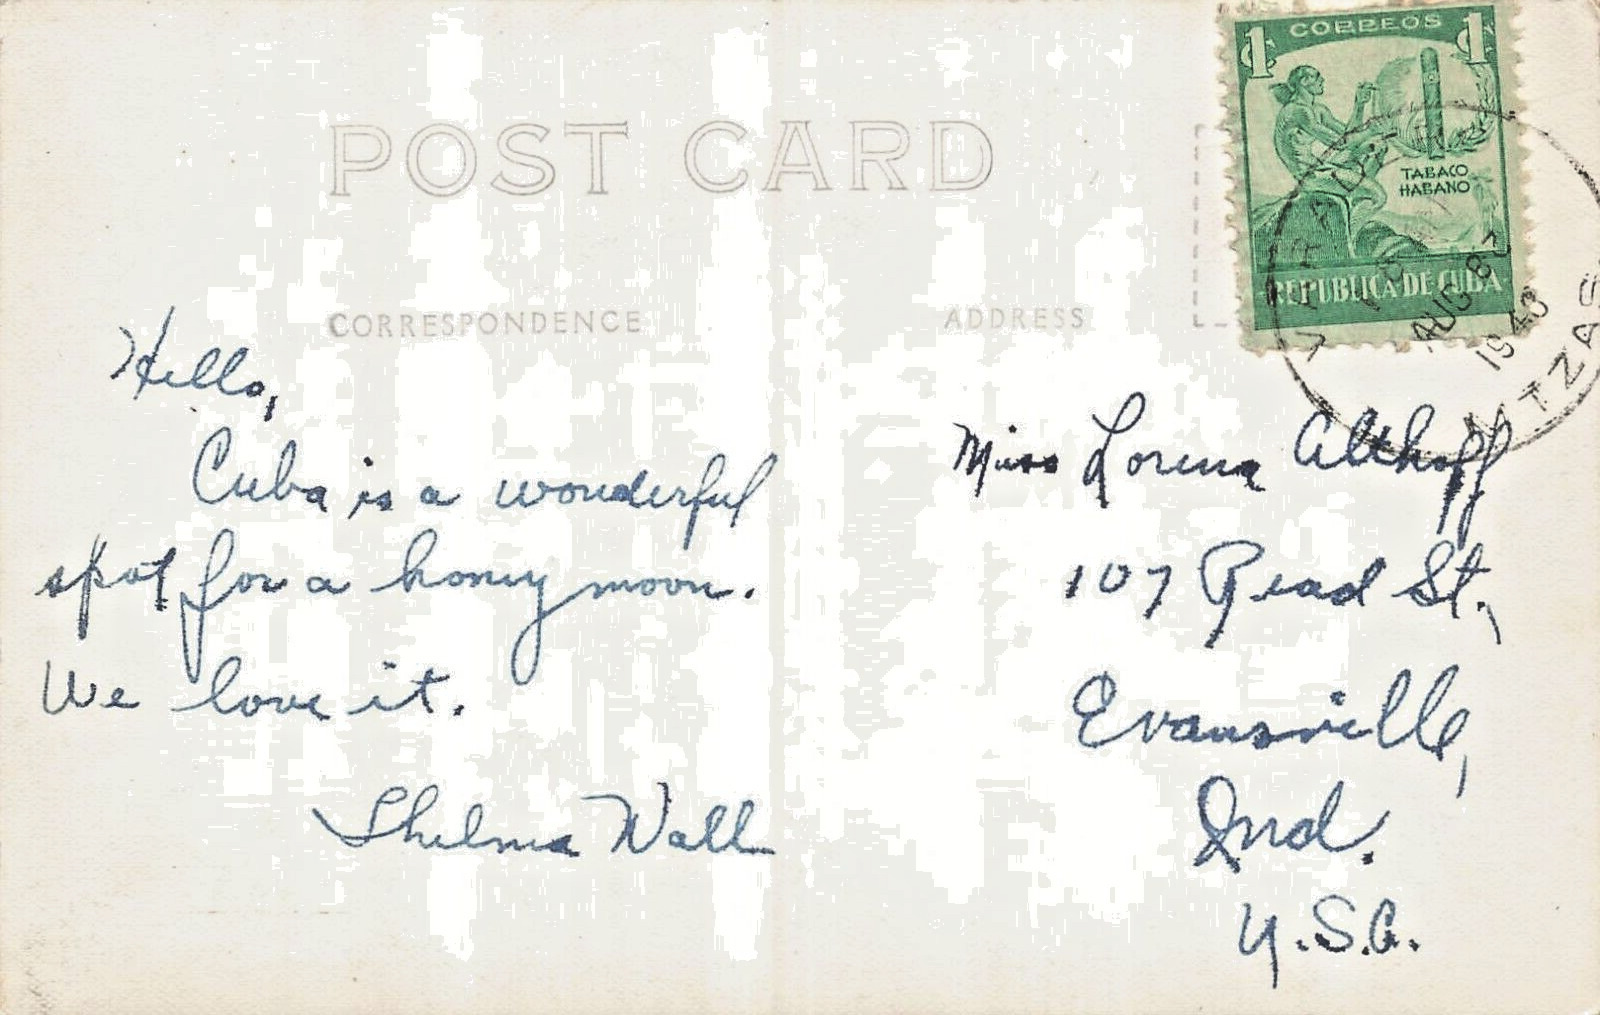 POST CARD
CORRESPONDENCE
ADDRESS
CORREOS
1 1
TABACO
HABANO
REPUBLICA DE CUBA
VARADERO
AUG 8
194
TZAS
Hello,
Cuba is a wonderful
spot for a honey moon.
We love it.
Thelma Wall
Miss Lorena Althoff
107 Read St.,
Evansville,
Ind.
U.S.A.